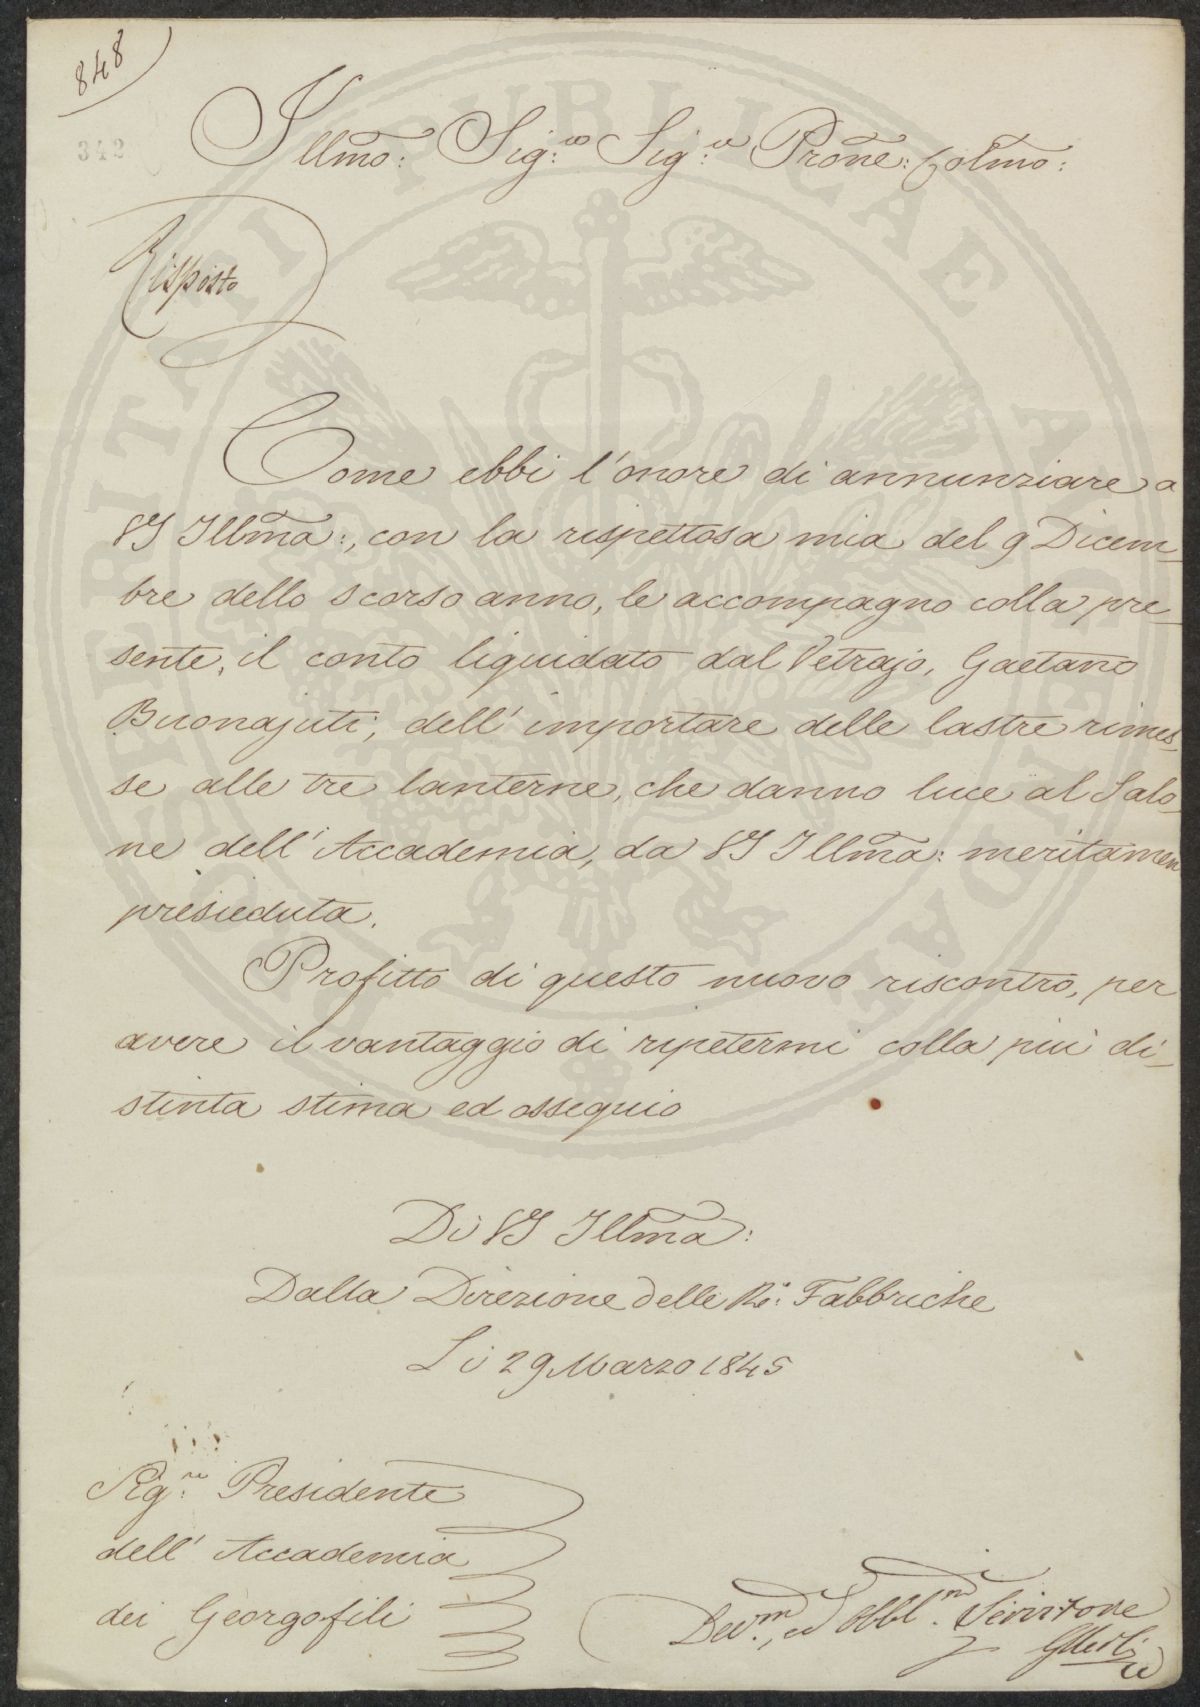 848
342
Illmo: Sig:re Sig:re Prone: Colmo:
Risposto
Come ebbi l'onore di annunziare a
VS Illma:, con la rispettosa mia del 9 Dicem-
bre dello scorso anno, le accompagno colla pre-
sente, il conto liquidato dal Vetrajo, Gaetano
Buonajuti, dell'importare delle lastre rimes-
se alle tre lanterne, che danno luce al Salo-
ne dell'Accademia, da VS Illma: meritamen
presieduta.
Profitto di questo nuovo riscontro, per
avere il vantaggio di ripetermi colla più di-
stinta stima ed ossequio
Di VS Illma:
Dalla Direzione delle Re: Fabbriche
Li 29 Marzo 1845
Sig:re Presidente
dell'Accademia
dei Georgofili
Dev.m, ed Obbl.m Servitore
PROSPERITATI PUBLICAE AUGENDAE